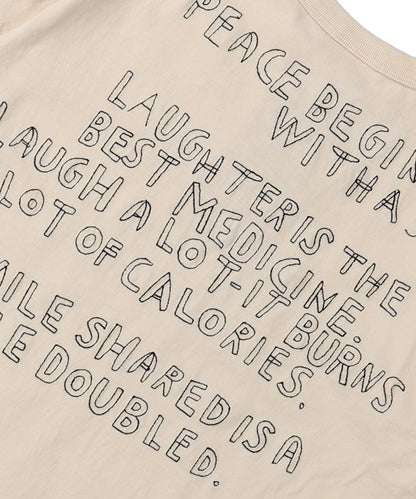 PEACE BEGIN
WITH A S
LAUGHTER IS THE
BEST MEDICINE.
LAUGH A LOT-IT BURNS
LOT OF CALORIES.
MILE SHARED IS A
LE DOUBLED.